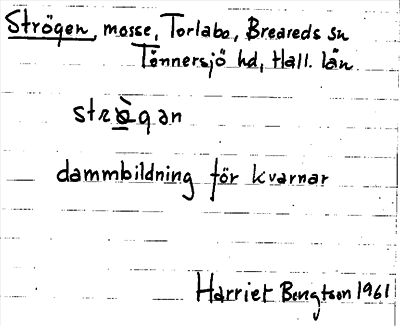 Strögen, mosse, Torlabo, Breareds sn
Tönnersjö hd, Hall. län
strògan
dammbildning för kvarnar
Harriet Bengtson 1961